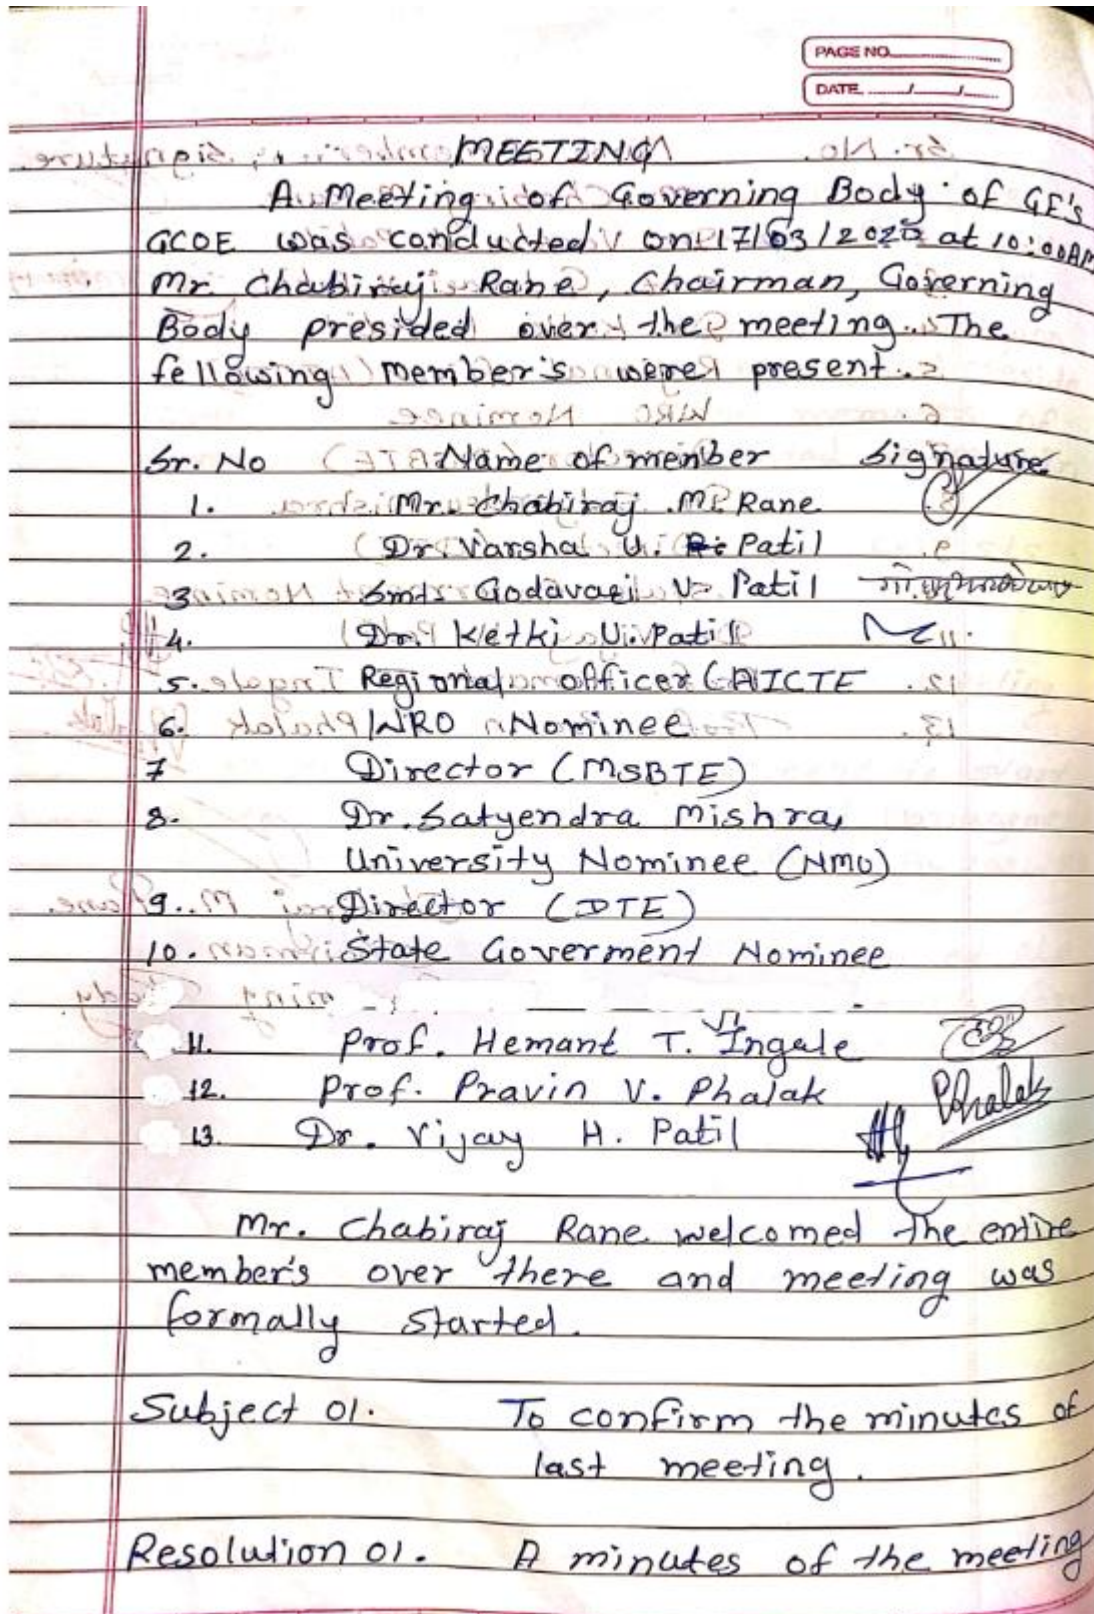 PAGE NO.
DATE / /
MEETING
A Meeting of Governing Body of GF's
GCOE was conducted on 17/03/2020 at 10:00AM
Mr. Chabiraj Rane, Chairman, Governing
Body presided over the meeting. The
fellowing member's were present.
Sr. No Name of member Signature
1. Mr. Chabiraj M. Rane
2. Dr. Varsha U. Patil
3 Smt. Godavari V. Patil
4. Dr. Ketki U. Patil
5. Regional officer (AICTE
6. WRO Nominee
7 Director (MSBTE)
8. Dr. Satyendra Mishra,
University Nominee (NMU)
9. Director (DTE)
10. State Goverment Nominee
11. Prof. Hemant T. Ingale
12. Prof. Pravin V. Phalak Phalak
13. Dr. Vijay H. Patil
Mr. Chabiraj Rane welcomed the entire
member's over there and meeting was
formally started.
Subject 01. To confirm the minutes of
last meeting.
Resolution 01. A minutes of the meeting